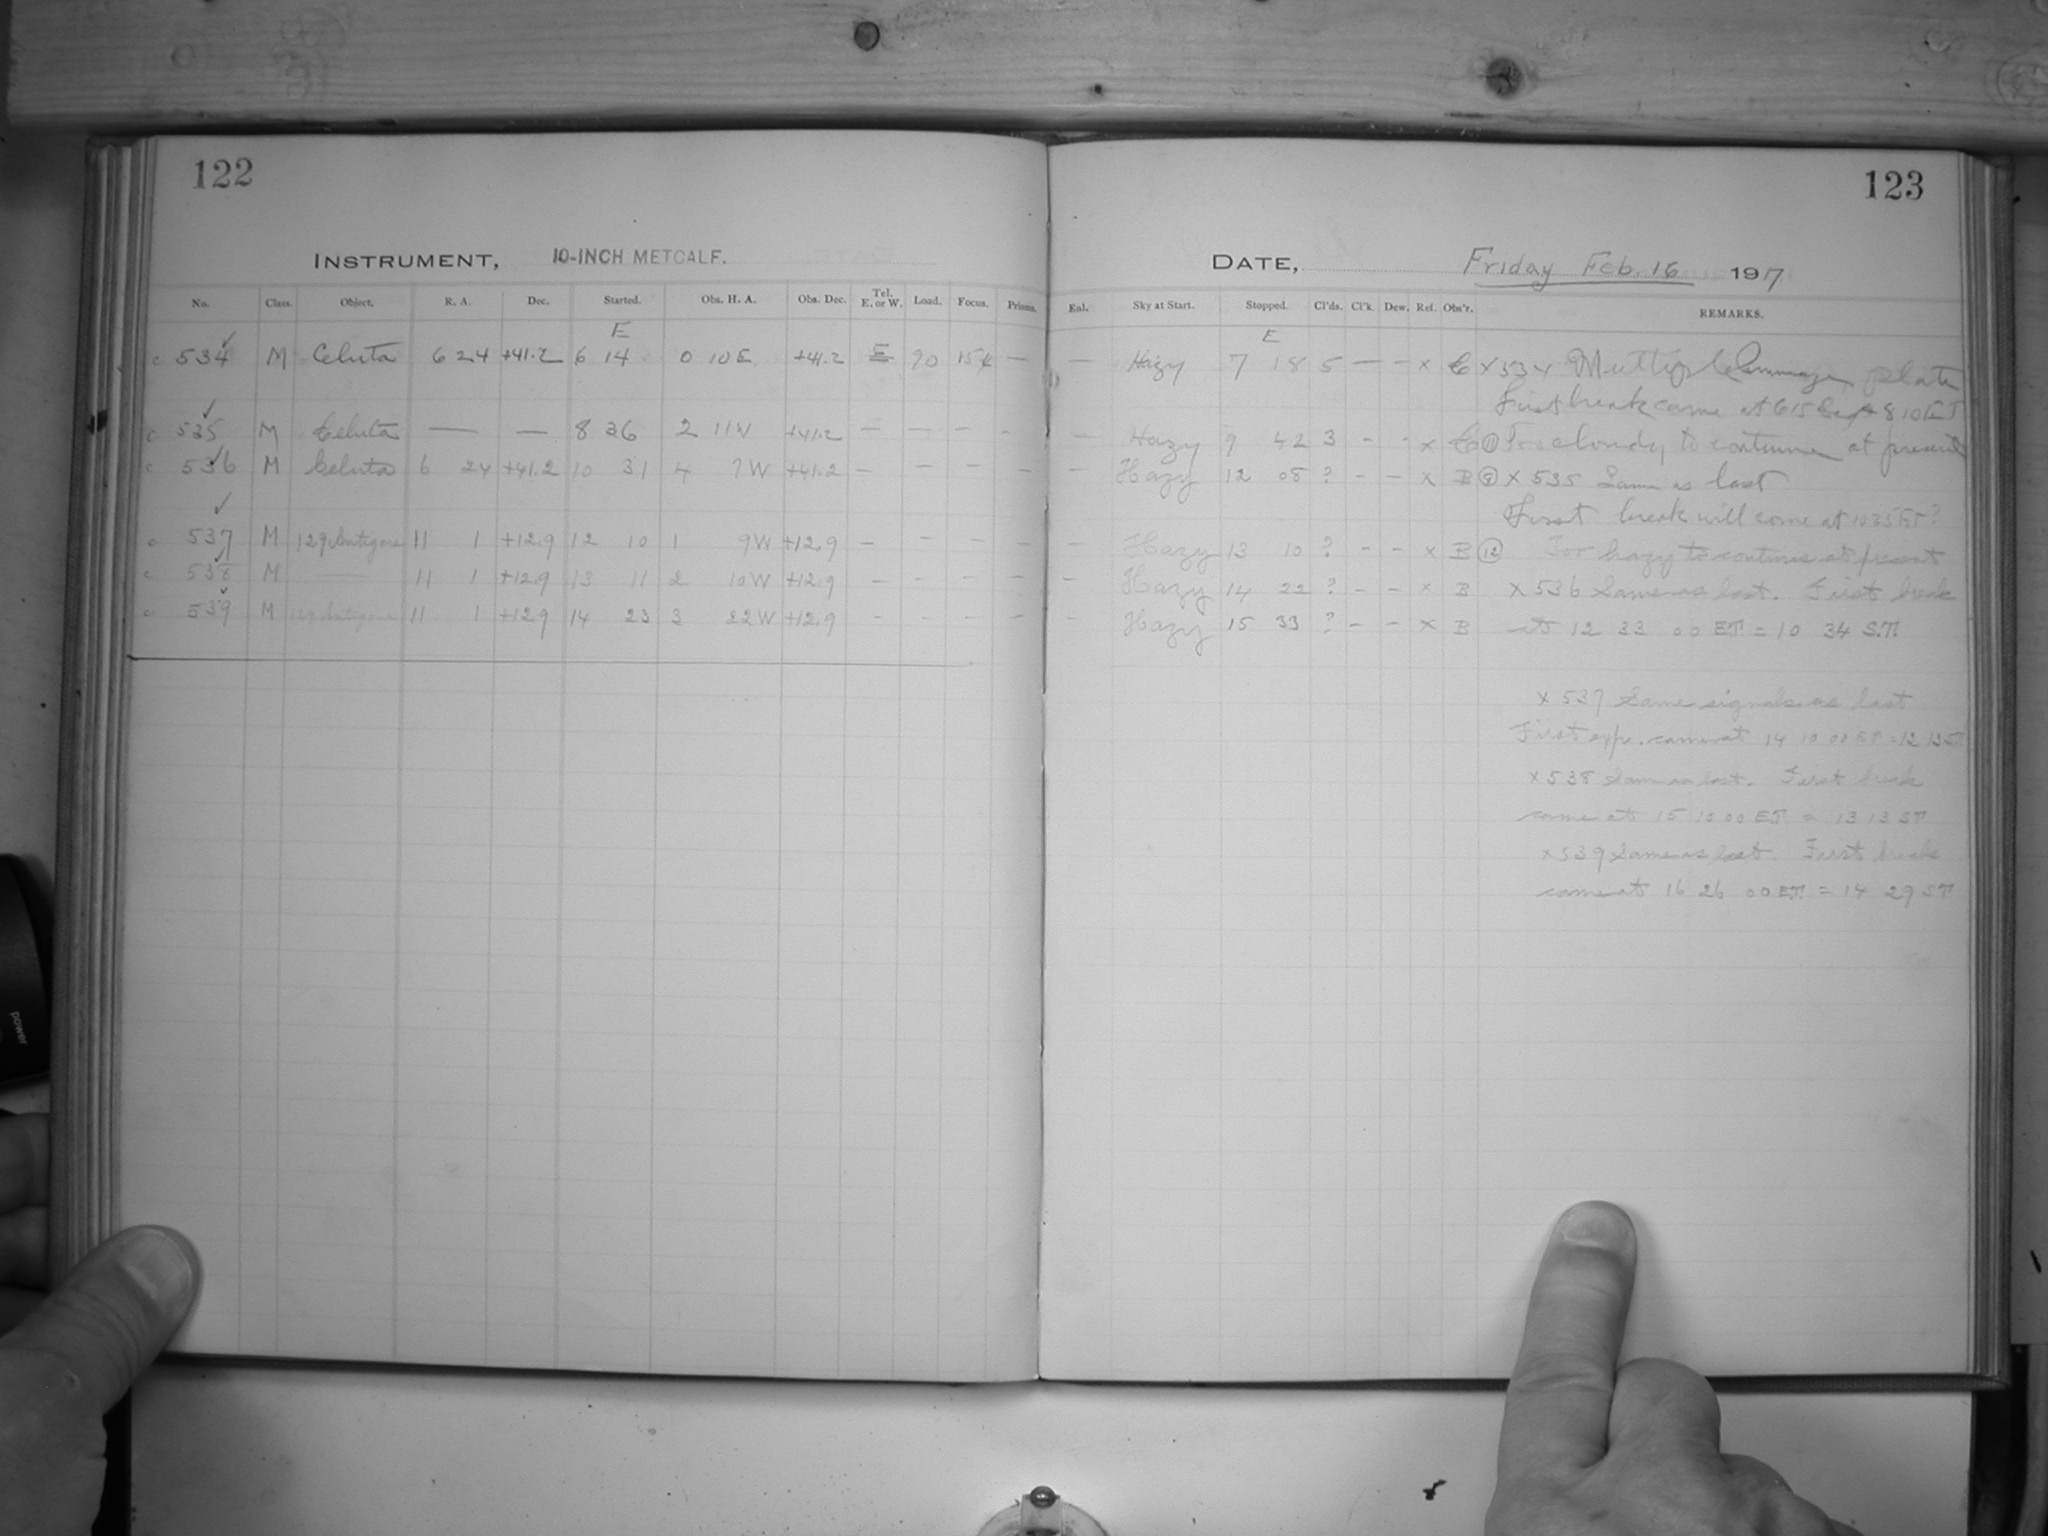 122
INSTRUMENT, 10-INCH METCALF.
No. Class. Object. R. A. Dec. Started. Obs. H. A. Obs. Dec. Tel. E. or W. Load. Focus. Prisms.
E
c 534 ✓ M Celuta 6 24 +41.2 6 14 0 10 E +41.2 E 90 154 —
c 535 ✓ M Celuta — — 8 36 2 11 W +41.2 — — — —
c 536 ✓ M Celuta 6 24 +41.2 10 31 4 7 W +41.2 — — — —
c 537 ✓ M 129 Antigone 11 1 +12.9 12 10 1 9 W +12.9 — — — —
c 538 ✓ M —— 11 1 +12.9 13 11 2 10 W +12.9 — — — —
c 539 ✓ M 129 Antigone 11 1 +12.9 14 23 3 22 W +12.9 — — — —
123
DATE, Friday Feb. 16 1917
Enl. Sky at Start. Stopped. Cl'ds. Cl'k. Dew. Ref. Obs'r. REMARKS.
E
— Hazy 7 18 5 — — x C x 534 Multiple Image plate
First break came at 615 8 10 ET
— Hazy 9 42 3 - - x C ⑪ Too cloudy to continue at present
— Hazy 12 08 ? - - x B x 535 Same as last
First break will come at 1035 ET?
— Hazy 13 10 ? - - x B ⑫ Too hazy to continue at present
— Hazy 14 22 ? - - x B x 536 Same as last. First break
Hazy 15 33 ? - - x B at 12 33 00 E.T. = 10 34 S.T.
x 537 Same signals as last
First exp. came at 14 10 00 ET = 12 13 ST
x 538 Same as last. First break
came at 15 10 00 ET = 13 13 ST
x 539 Same as last. First break
came at 16 26 00 ET. = 14 29 ST
power